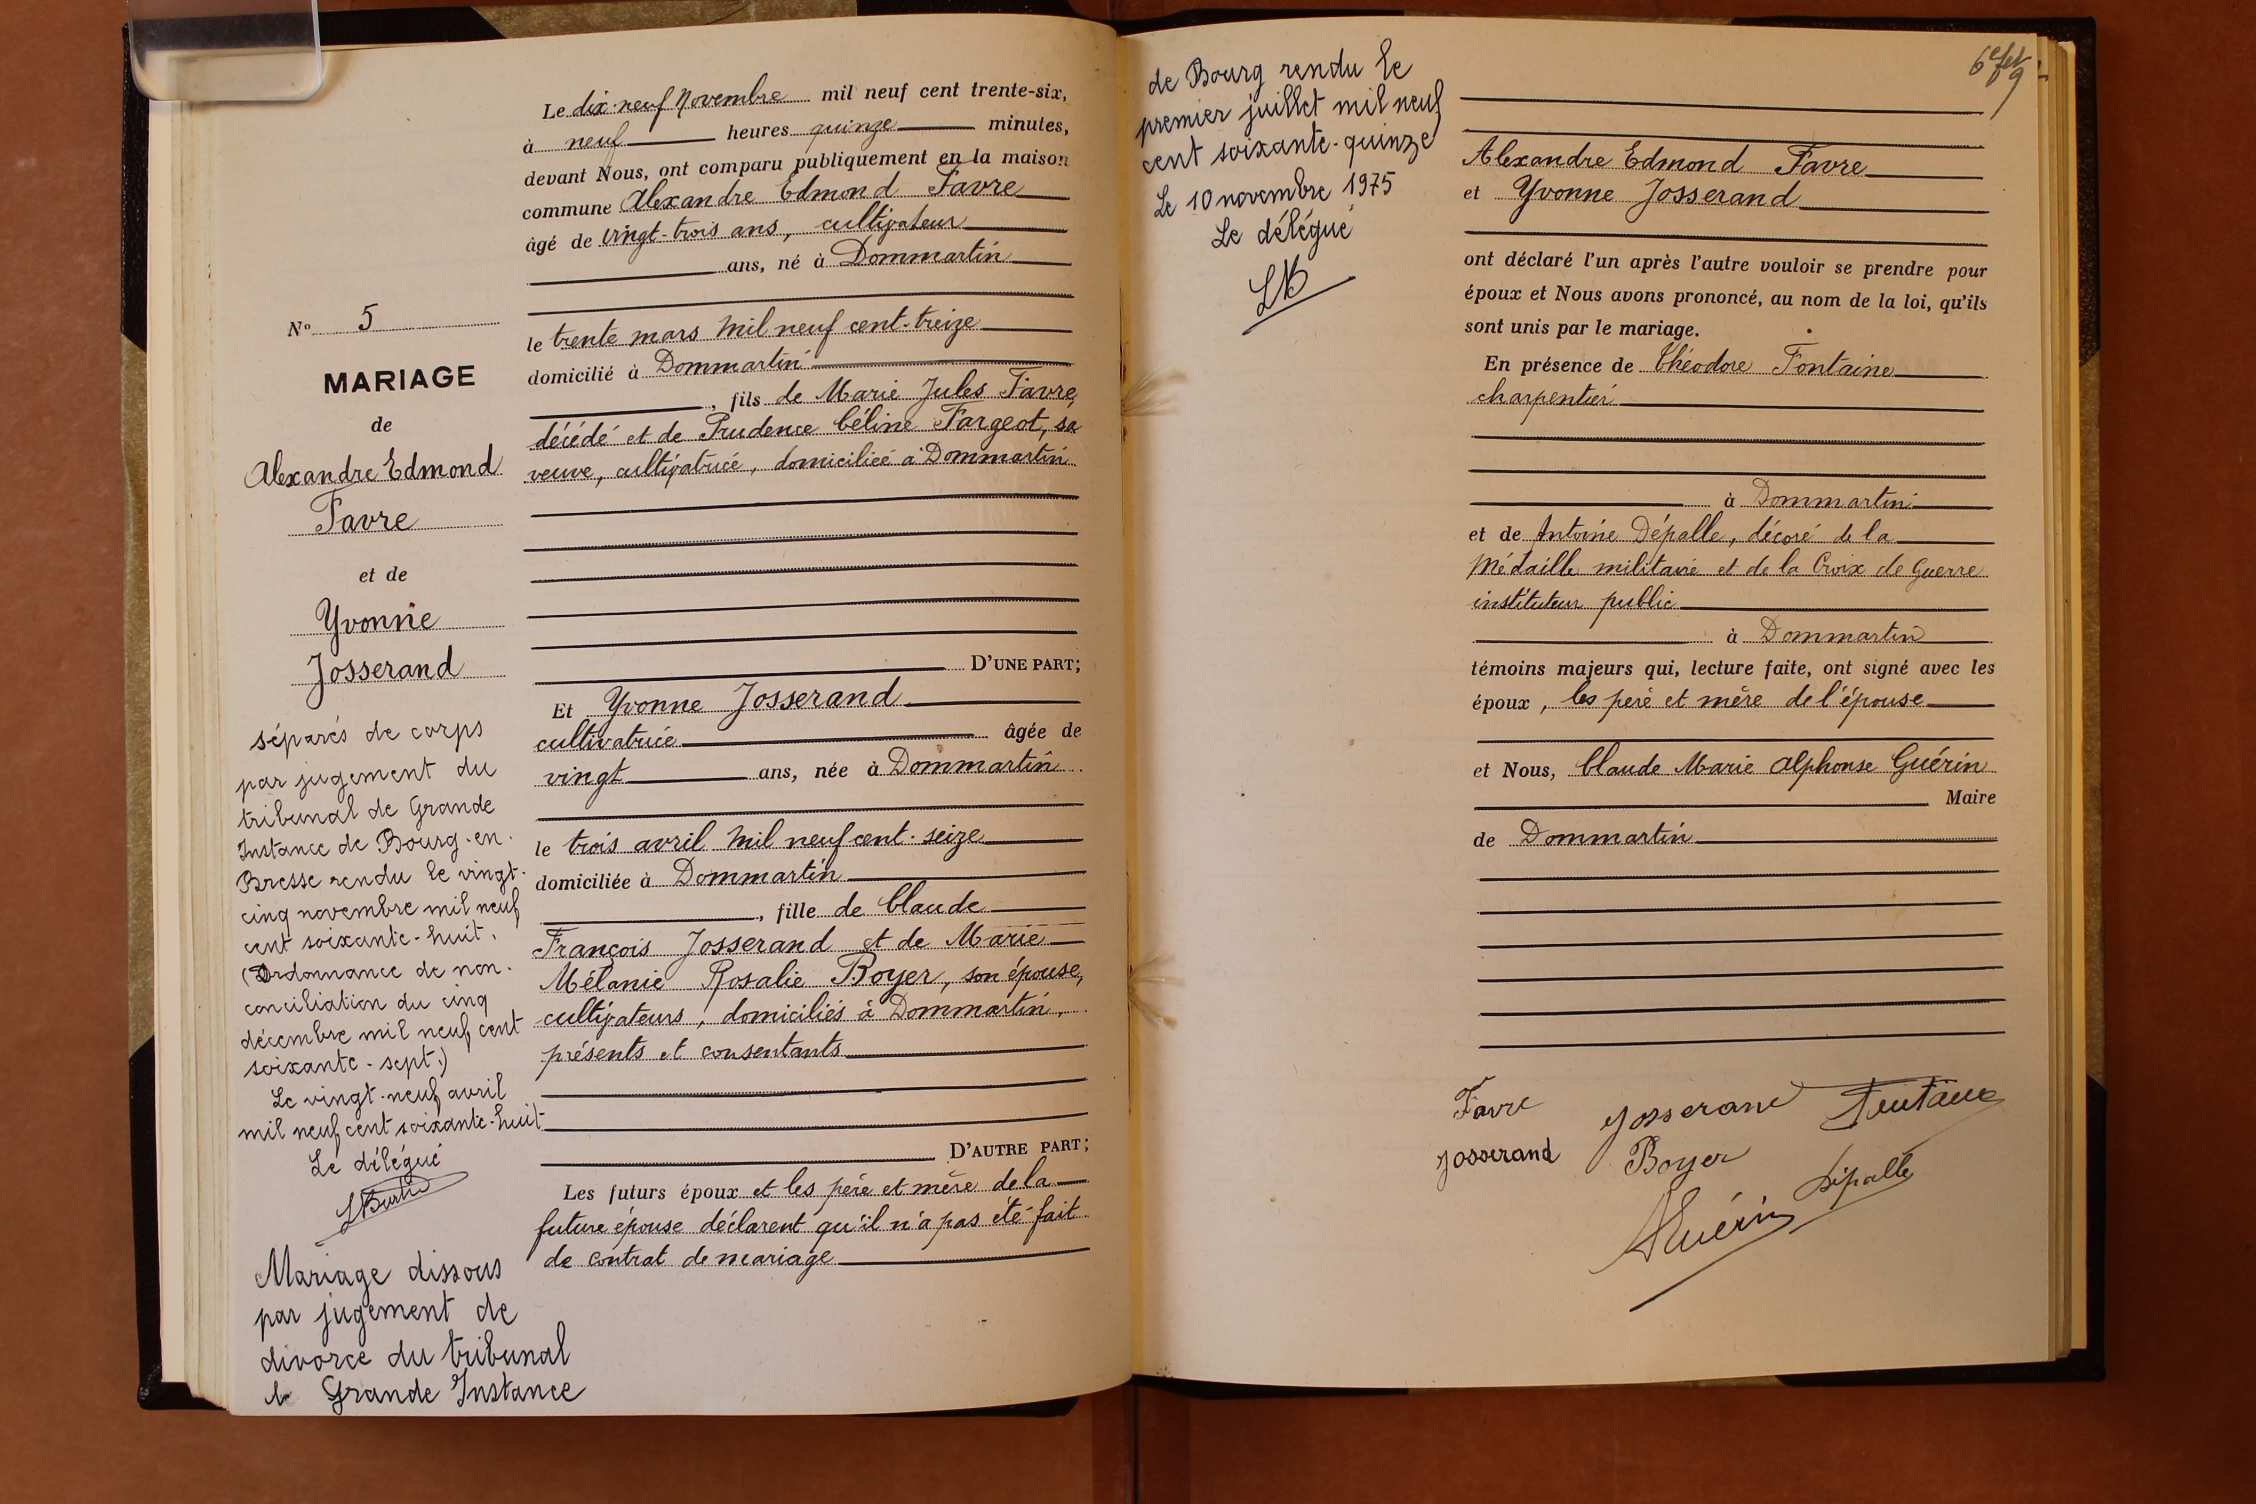 Le dix-neuf Novembre mil neuf cent trente-six,
à neuf heures quinze minutes,
devant Nous, ont comparu publiquement en la maison
commune Alexandre Edmond Favre
âgé de vingt-trois ans, cultivateur
ans, né à Dommartin
le trente mars mil neuf cent-treize
domicilié à Dommartin
, fils de Marie Jules Favre,
décédé et de Prudence Céline Fargeot, sa
veuve, cultivatrice, domiciliée à Dommartin
D'UNE PART;
Et Yvonne Josserand
cultivatrice âgée de
vingt ans, née à Dommartin
le trois avril mil neuf cent-seize
domiciliée à Dommartin
, fille de Claude
François Josserand et de Marie
Mélanie Rosalie Boyer, son épouse,
cultivateurs, domiciliés à Dommartin,
présents et consentants
D'AUTRE PART;
Les futurs époux et les père et mère de la
future épouse déclarent qu'il n'a pas été fait
de contrat de mariage
No 5
MARIAGE
de
Alexandre Edmond
Favre
et de
Yvonne
Josserand
séparés de corps
par jugement du
tribunal de Grande
Instance de Bourg-en-
Bresse rendu le vingt-
cinq novembre mil neuf
cent soixante-huit.
(Ordonnance de non-
conciliation du cinq
décembre mil neuf cent
soixante-sept.)
Le vingt-neuf avril
mil neuf cent soixante-huit
Le délégué
Mariage dissous
par jugement de
divorce du tribunal
de Grande Instance
de Bourg rendu le
premier juillet mil neuf
cent soixante-quinze
Le 10 novembre 1975
Le délégué
LB
6e fet
9
Alexandre Edmond Favre
et Yvonne Josserand
ont déclaré l'un après l'autre vouloir se prendre pour
époux et Nous avons prononcé, au nom de la loi, qu'ils
sont unis par le mariage.
En présence de Théodore Fontaine
charpentier
à Dommartin
et de Antoine Dépalle, décoré de la
Médaille militaire et de la Croix de Guerre
instituteur public
à Dommartin
témoins majeurs qui, lecture faite, ont signé avec les
époux, les père et mère de l'épouse
et Nous, Claude Marie Alphonse Guérin
Maire
de Dommartin
Favre Josserand Fontaine
Josserand Boyer Dépalle
AGuérin